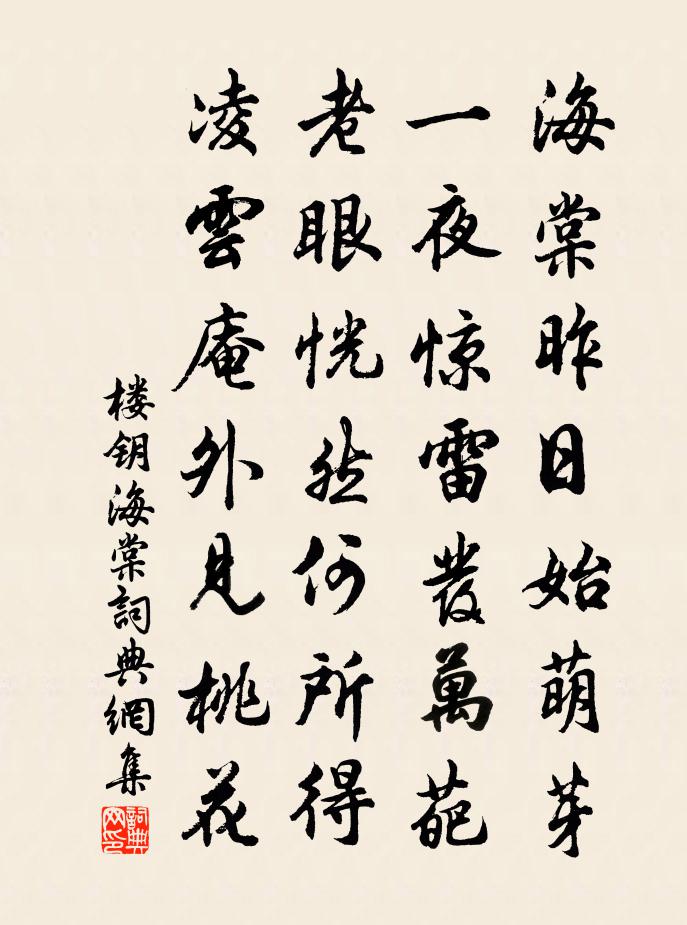 海棠昨日始萌芽
一夜惊雷發萬葩
老眼恍然何所得
凌雲庵外見桃花
楼钥海棠詞典網集
詞典網印